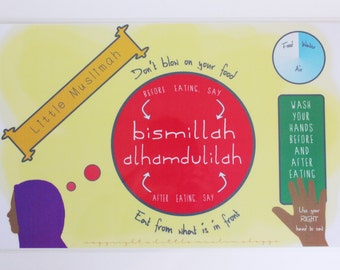 Little Muslimah
Don't blow on your food
Food
Water
Air
BEFORE EATING, SAY
bismillah
alhamdulilah
AFTER EATING, SAY
Eat from what is in front
WASH
YOUR
HANDS
BEFORE
AND
AFTER
EATING
Use your
RIGHT
hand to eat